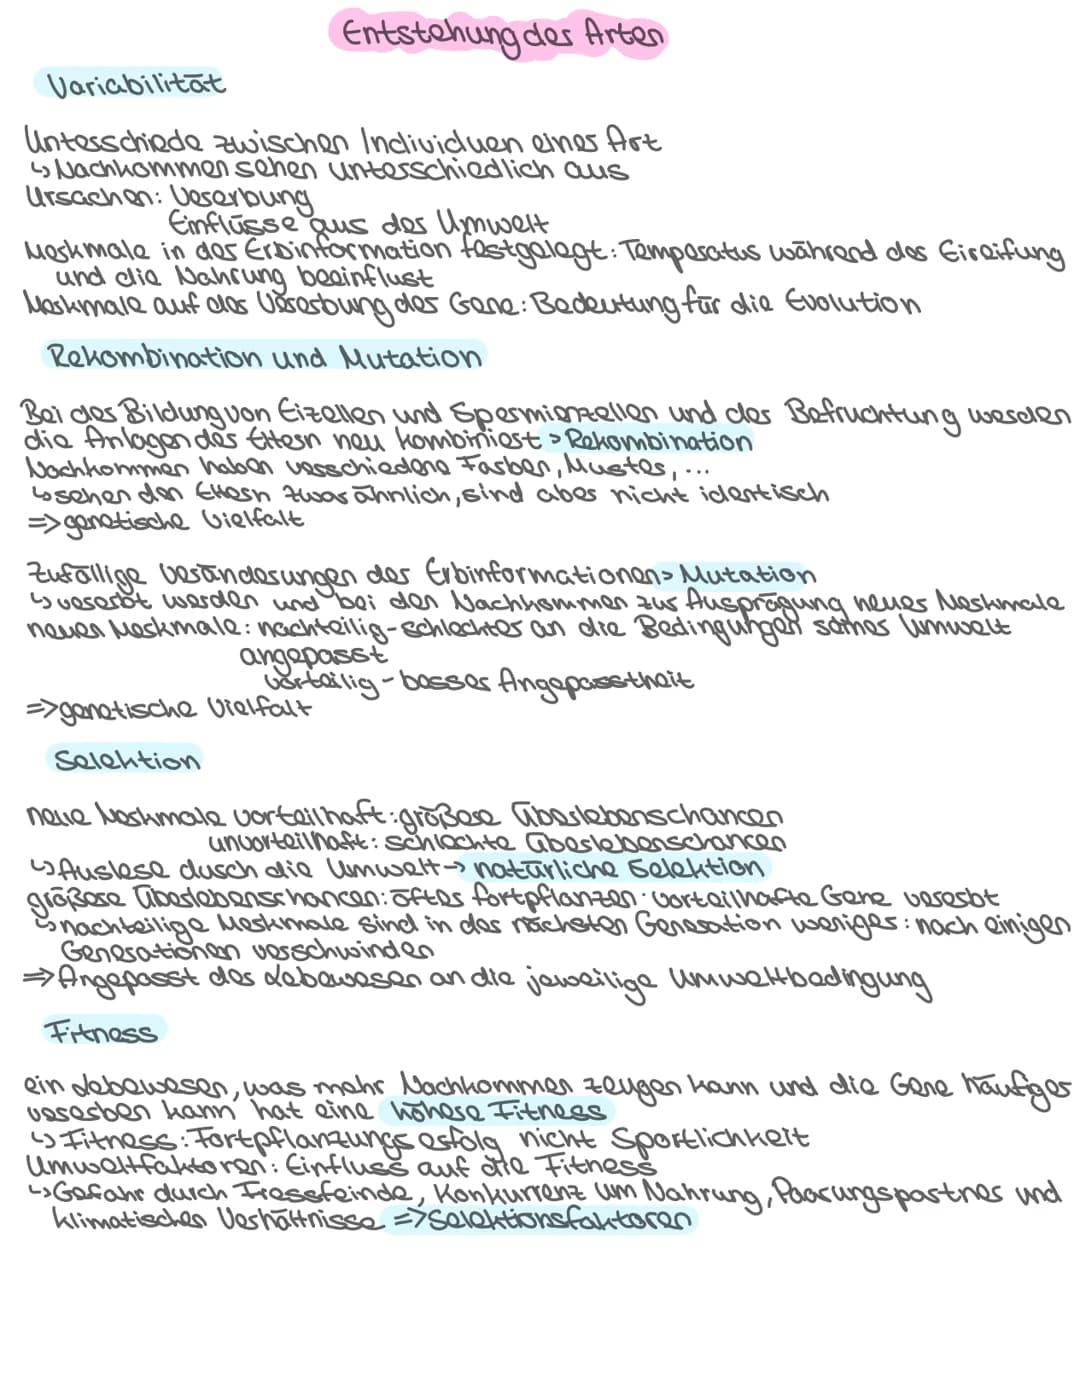 Entstehung der Arten
Variabilität
Unterschiede zwischen Individuen einer Art
↳ Nachkommen sehen unterschiedlich aus
Ursachen: Vererbung
Einflüsse aus der Umwelt
Merkmale in der Erbinformation festgelegt: Temperatur während der Eireifung
und die Nahrung beeinflust
Merkmale auf der Vererbung der Gene: Bedeutung für die Evolution
Rekombination und Mutation
Bei der Bildung von Eizellen und Spermienzellen und der Befruchtung werden
die Anlagen der Eltern neu kombiniert > Rekombination
Nachkommen haben verschiedene Farben, Muster, ...
↳ sehen den Eltern zwar ähnlich, sind aber nicht identisch
=> genetische Vielfalt
Zufällige Veränderungen der Erbinformationen > Mutation
↳ vererbt werden und bei den Nachkommen zur Ausprägung neuer Merkmale
neuen Merkmale: nachteilig - schlechter an die Bedingungen seiner Umwelt
angepasst
vorteilig - besser Angepasstheit
=> genetische Vielfalt
Selektion
neue Merkmale vorteilhaft: größere Überlebenschancen
unvorteilhaft: schlechte Überlebenschancen
↳ Auslese durch die Umwelt → natürliche Selektion
größere Überlebenschancen: öfter fortpflanzen · vorteilhafte Gene vererbt
↳ nachteilige Merkmale sind in der nächsten Generation weniger: nach einigen
Generationen verschwinden
⇒ Angepasst der Lebewesen an die jeweilige Umweltbedingung
Fitness
ein Lebewesen, was mehr Nachkommen zeugen kann und die Gene häufger
vererben kann hat eine höhere Fitness
↳ Fitness: Fortpflanzungserfolg nicht Sportlichkeit
Umweltfaktoren: Einfluss auf die Fitness
↳ Gefahr durch Fressfeinde, Konkurrenz um Nahrung, Paarungspartner und
klimatischen Verhältnisse => Selektionsfaktoren